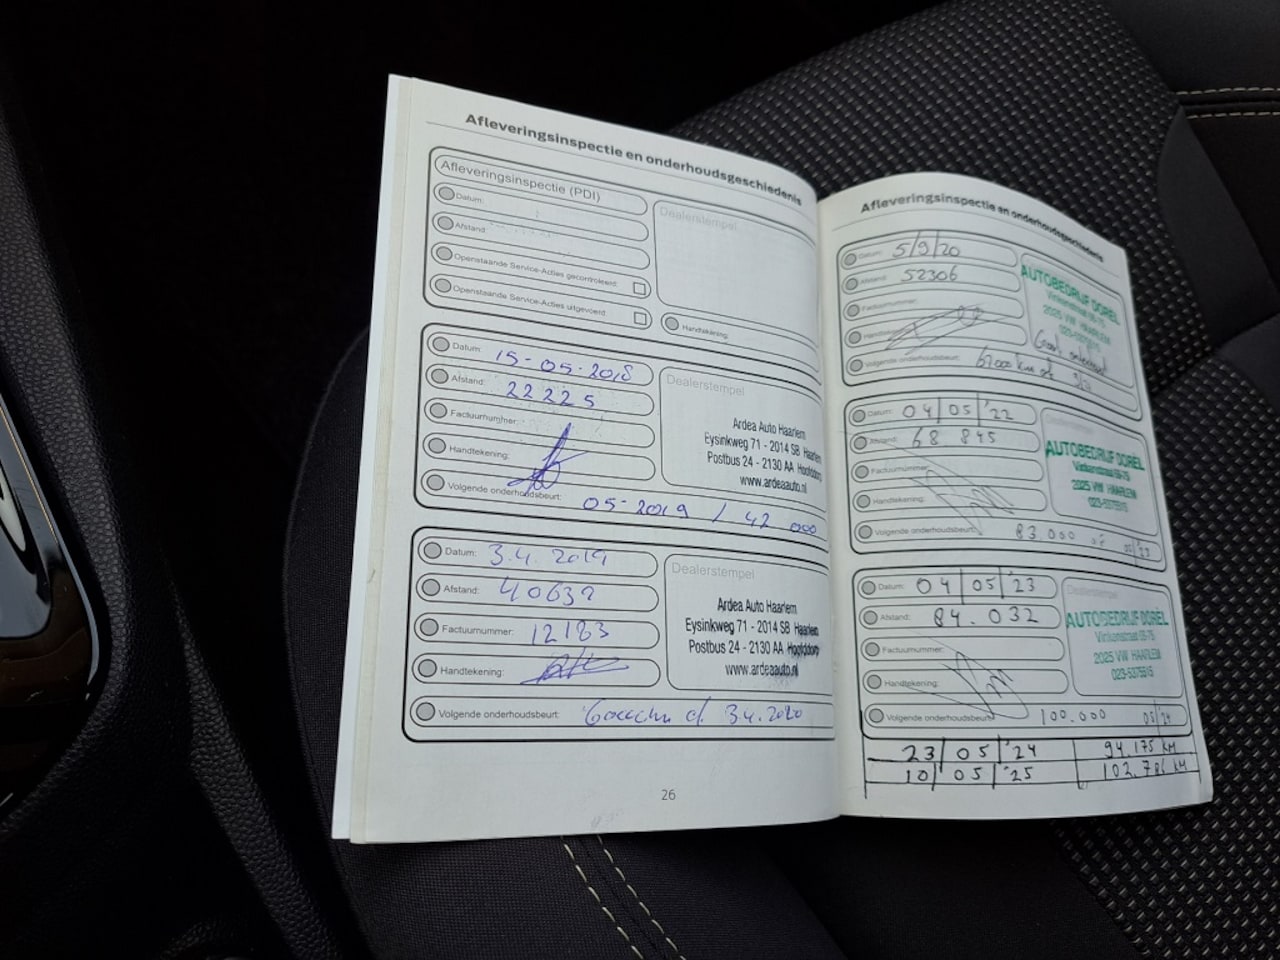 Afleveringsinspectie en onderhoudsgeschiedenis
Afleveringsinspectie (PDI)
Datum:
Afstand:
Openstaande Service-Acties gecontroleerd:
Openstaande Service-Acties uitgevoerd
Dealerstempel
Handtekening:
Datum: 15-05-2018
Afstand: 22225
Factuurnummer:
Handtekening:
Volgende onderhoudsbeurt: 05-2019 / 42 000
Dealerstempel
Ardea Auto Haarlem
Eysinkweg 71 - 2014 SB Haarlem
Postbus 24 - 2130 AA Hoofddorp
www.ardeaauto.nl
Datum: 3.4. 2019
Afstand: 40632
Factuurnummer: 12183
Handtekening:
Volgende onderhoudsbeurt: 3.4.2020
Dealerstempel
Ardea Auto Haarlem
Eysinkweg 71 - 2014 SB Haarlem
Postbus 24 - 2130 AA Hoofddorp
www.ardeaauto.nl
26
Afleveringsinspectie en onderhoudsgeschiedenis
Datum: 5/9/20
Afstand: 52306
Factuurnummer:
Handtekening:
Volgende onderhoudsbeurt: 67000 km of
AUTOBEDRIJF DOREL
Vinkenstraat 68-75
2025 VW HAARLEM
023-5375515
Groot onderhoud
Datum: 04/05/'22
Afstand: 68 845
Factuurnummer:
Handtekening:
Volgende onderhoudsbeurt: 83.000 of 05/'23
AUTOBEDRIJF DOREL
Vinkenstraat 68-75
2025 VW HAARLEM
023-5375515
Datum: 04|05|'23
Afstand: 84.032
Factuurnummer:
Handtekening:
Volgende onderhoudsbeurt: 100.000 05/24
Dealerstempel
AUTOBEDRIJF DOREL
Vinkenstraat 68-75
2025 VW HAARLEM
023-5375515
23|05|'24 94.175 KM
10|05|'25 102.786 KM